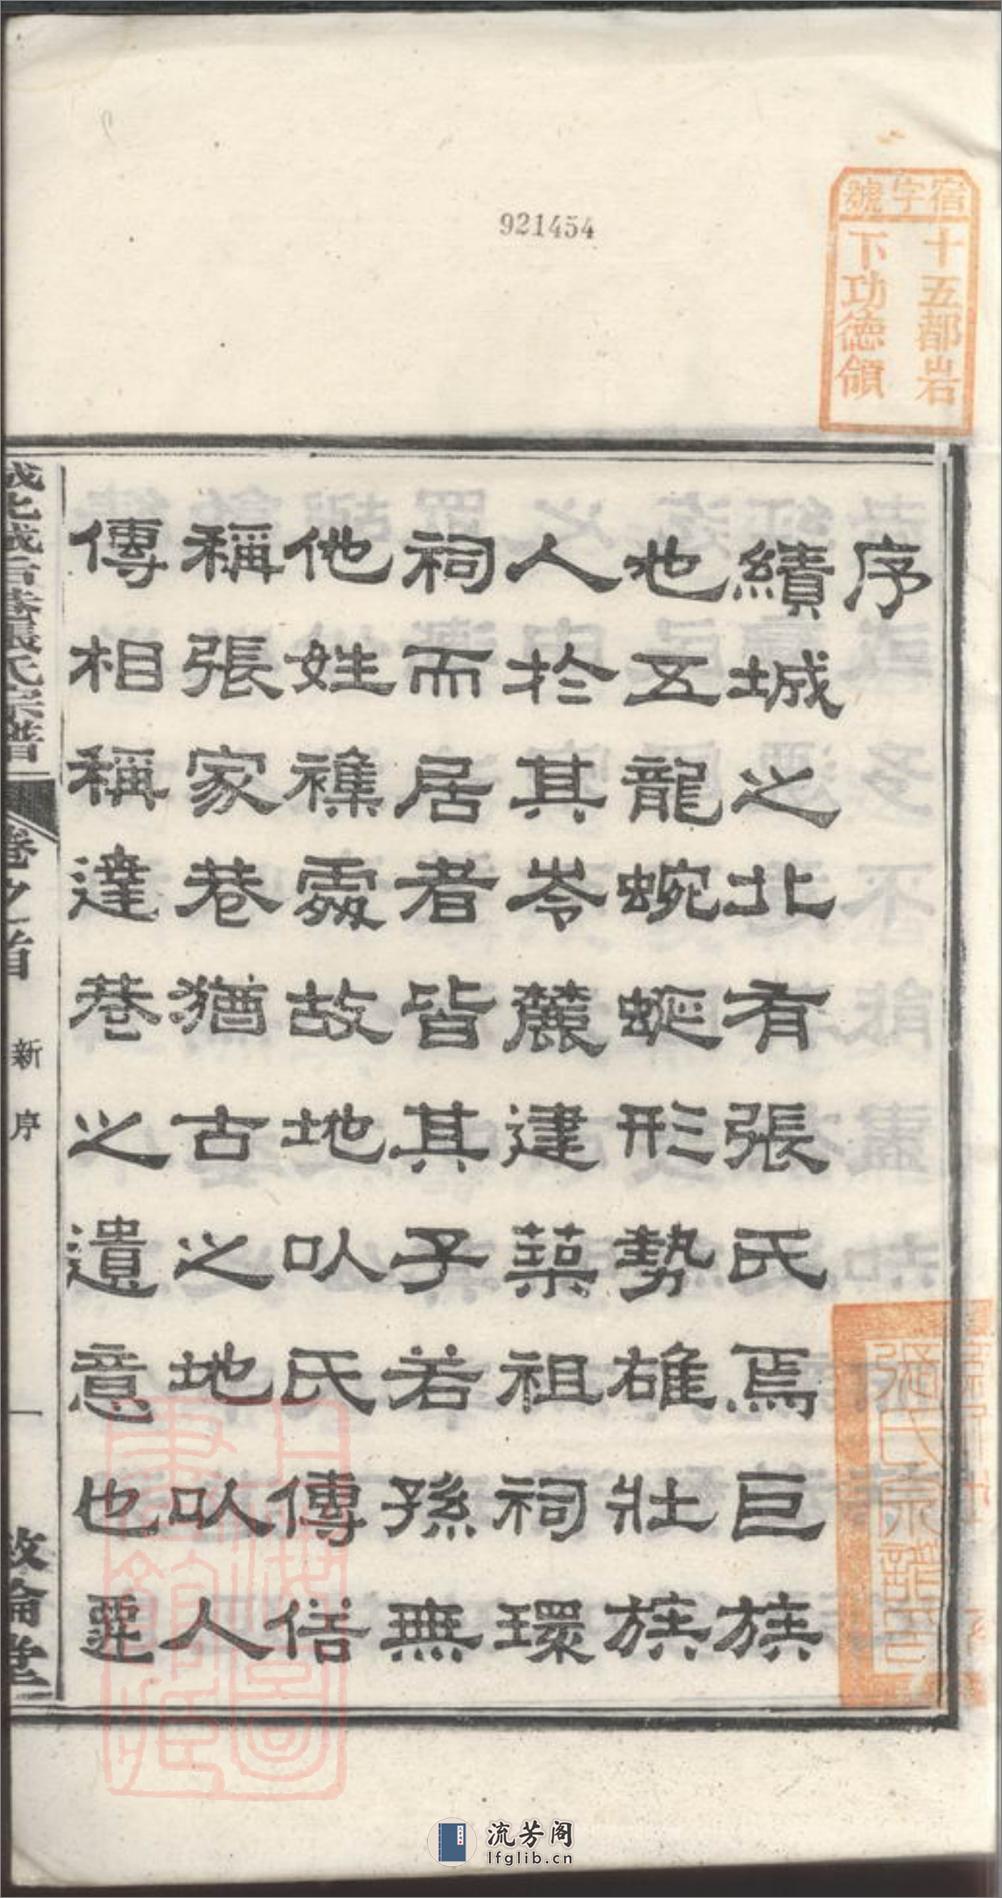 921454
宿字號
十五都岩
下功德領
序
績城之北有張氏焉巨族
也五龍蜿蜒形勢雄壯族
人於其岑麓建築祖祠環
祠而居者皆其子若孫無
他姓襍處故地以氏傳俗
稱張家巷猶古之地以人
傳相稱達巷之遺意也遷
城北張家巷張氏宗譜
卷之首
新序
一
敦倫堂
上海圖書館藏
流芳阁
lfglib.cn